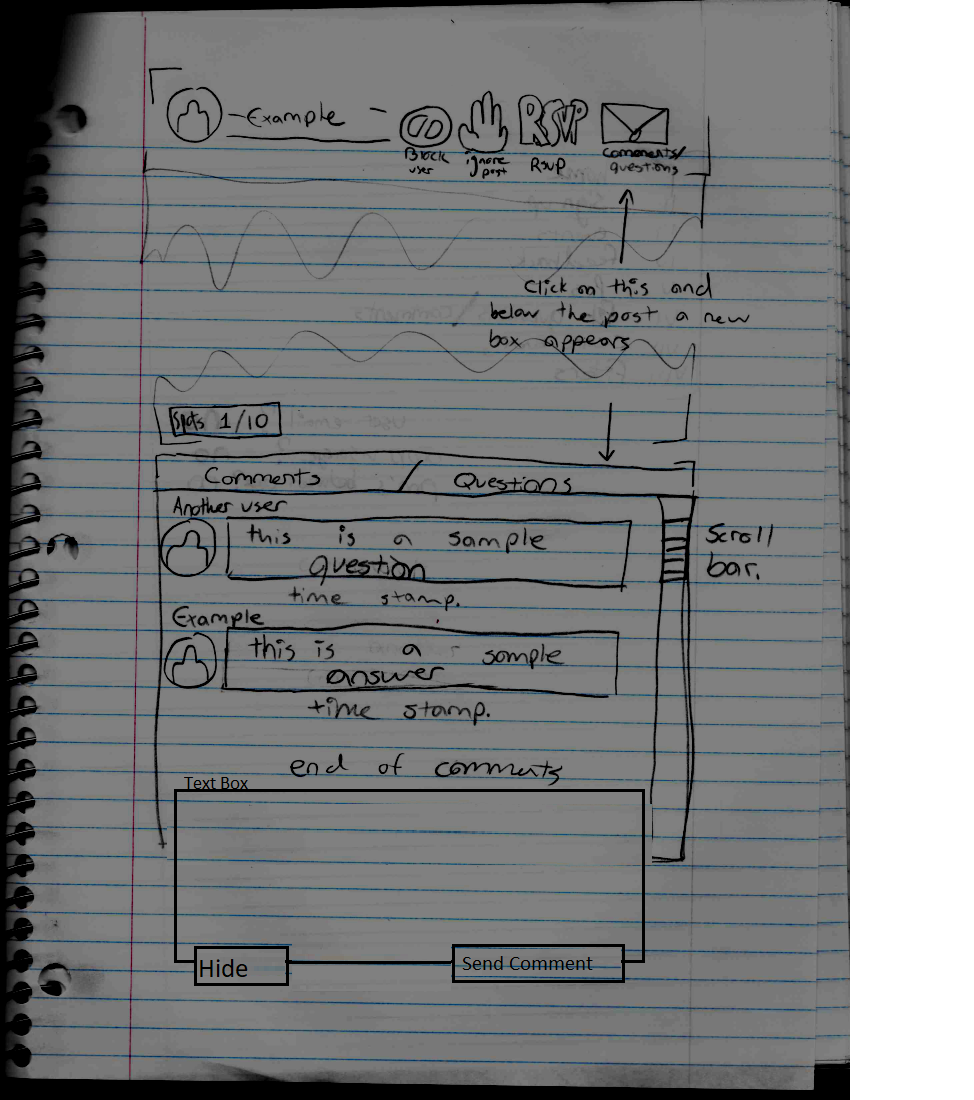 Example
Block
user
ignore
post
RSVP
RSVP
comments/
questions
Click on this and
below the post a new
box appears
Spots 1/10
Comments / Questions
Another user
this is a sample
question
time stamp.
Scroll
bar.
Example
this is a sample
answer
time stamp.
end of comments
Text Box
Hide
Send Comment